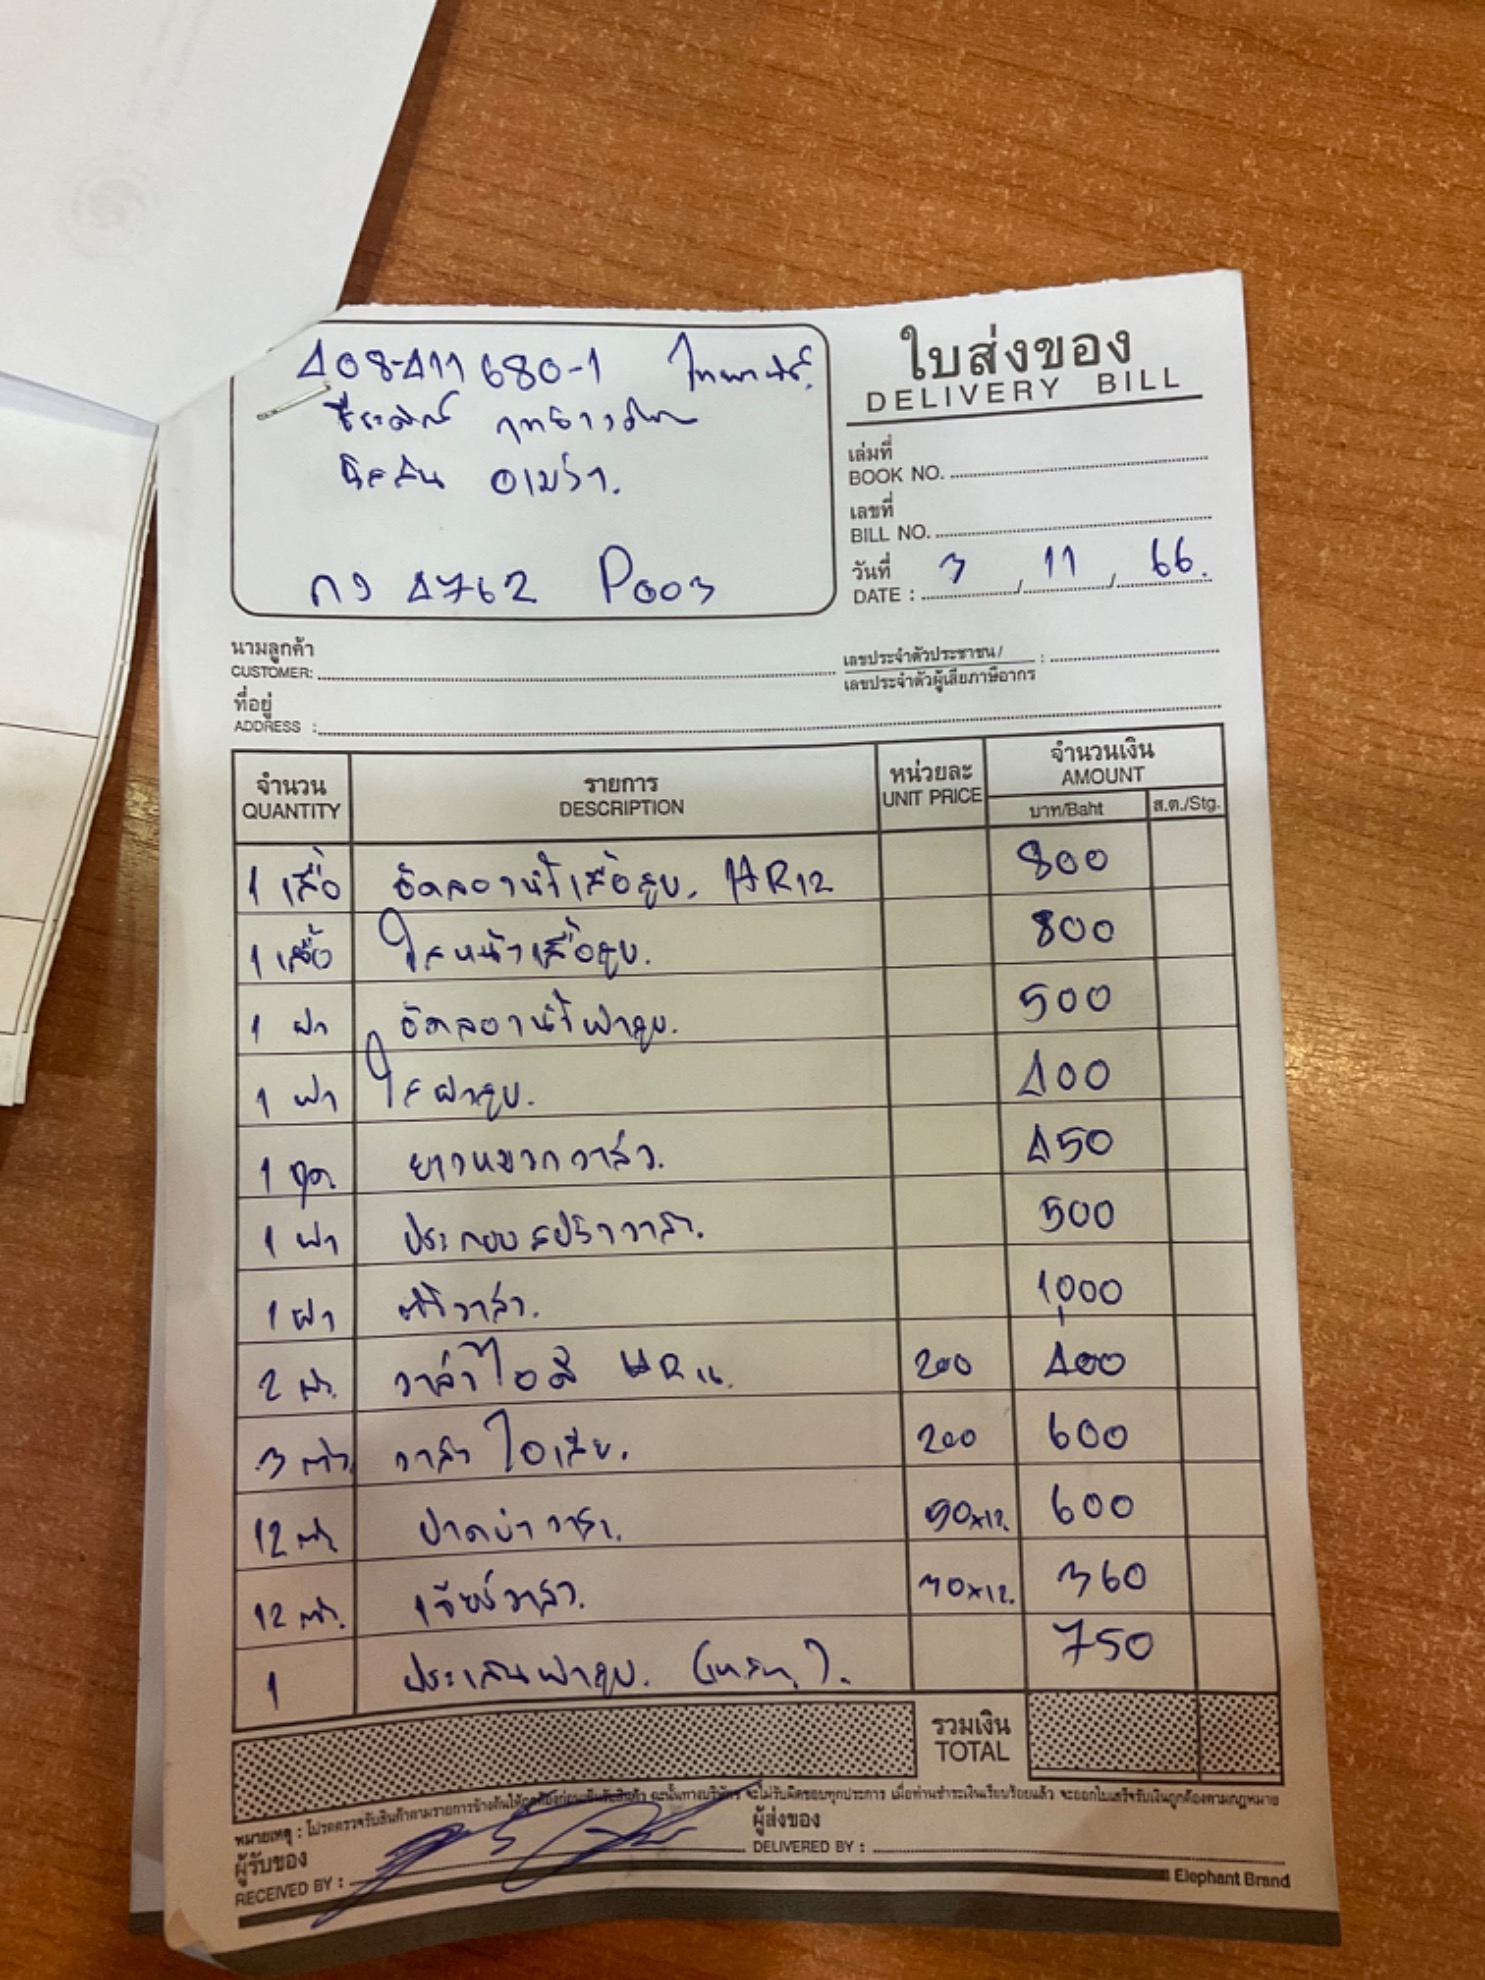 408-411680-1 ไทยพาณิชย์.
ธีระศักดิ์
นิสสัน อเมร่า.
กง 4762 P003
ใบส่งของ
DELIVERY BILL
เล่มที่
BOOK NO.
เลขที่
BILL NO.
วันที่
DATE : 3 / 11 / 66.
นามลูกค้า
CUSTOMER:
เลขประจำตัวประชาชน/ :
เลขประจำตัวผู้เสียภาษีอากร
ที่อยู่
ADDRESS :
จำนวน รายการ หน่วยละ จำนวนเงิน
QUANTITY DESCRIPTION UNIT PRICE AMOUNT
บาท/Baht ส.ต./Stg.
1 เสื้อ อัดลองน้ำเสื้อสูบ. HR12 800
1 เสื้อ ใสหน้าเสื้อสูบ. 800
1 ฝา อัดลองน้ำฝาสูบ. 500
1 ฝา ใสฝาสูบ. 400
1 ชุด ยางหมวกวาล์ว. 450
1 ฝา ประกอบสปริงวาล์ว. 500
1 ฝา ตั้งวาล์ว. 1,000
2 ตัว. วาล์วไอดี HR12. 200 400
3 ตัว. วาล์วไอเสีย. 200 600
12 ตัว. ปาดบ่าวาล์ว. 50x12. 600
12 ตัว. เจียร์วาล์ว. 30x12. 360
1 ประเก็นฝาสูบ. 750
รวมเงิน
TOTAL
หมายเหตุ : โปรดตรวจรับสินค้าตามรายการข้างต้นให้ถูกต้องก่อนเซ็นรับสินค้า ฉะนั้นทางบริษัทฯ จะไม่รับผิดชอบทุกประการ เมื่อท่านชำระเงินเรียบร้อยแล้ว จะออกใบเสร็จรับเงินถูกต้องตามกฎหมาย
ผู้รับของ ผู้ส่งของ
RECEIVED BY : DELIVERED BY :
Elephant Brand